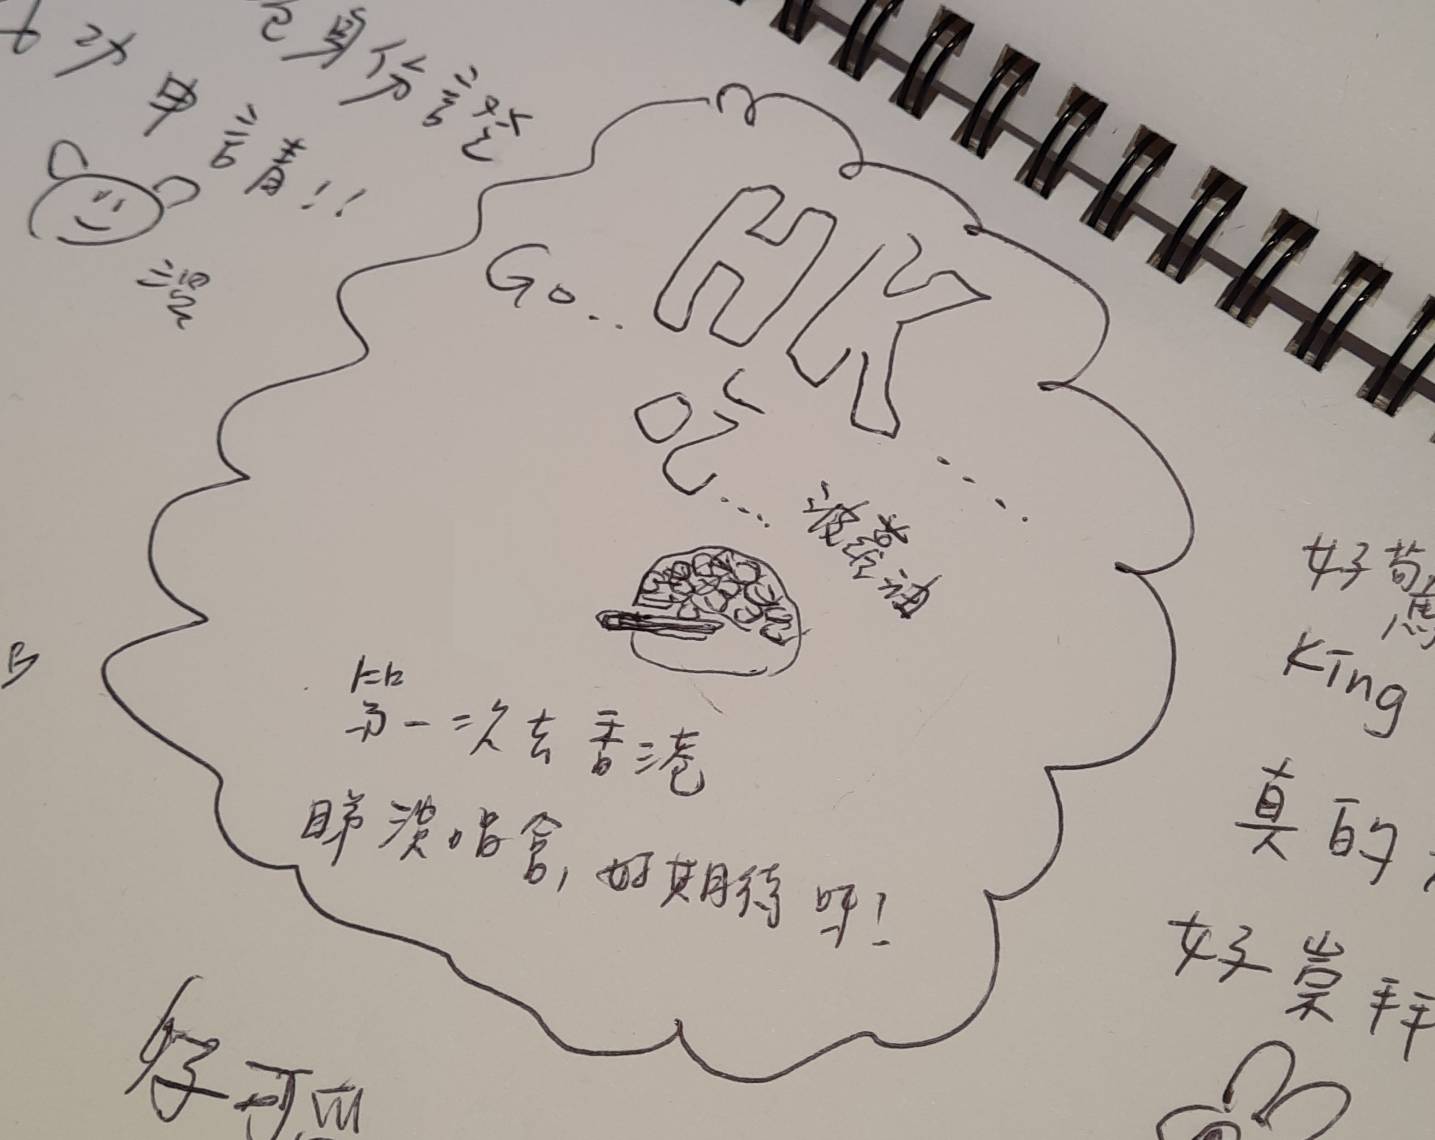 身份證
申請!!
Go.. HK....
吃...
菠蘿油
第一次去香港
睇演唱會, 好期待呀!
B
好驚
King
真的
好崇拜
好可